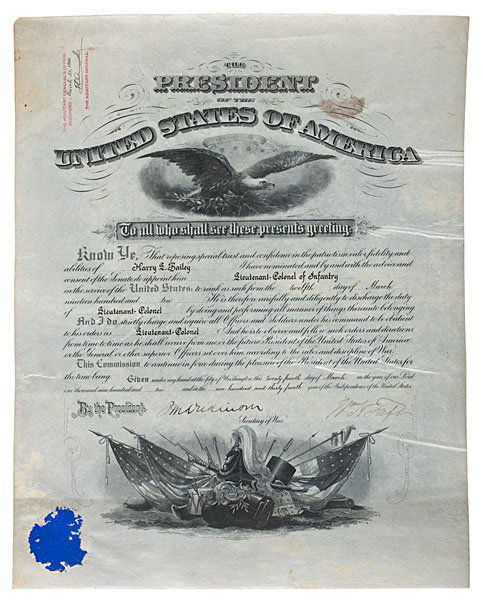 THE ADJUTANT GENERAL'S OFFICE,
THE ADJUTANT GENERAL.
THE
PRESIDENT
OF THE
UNITED STATES OF AMERICA
To all who shall see these presents greeting:
Know Ye, That reposing special trust and confidence in the patriotism, valor, fidelity and
abilities of Harry L. Bailey I have nominated and by and with the advice and
consent of the Senate do appoint him Lieutenant-Colonel of Infantry
in the service of the United States: to rank as such from the twelfth day of March
nineteen hundred and ten He is therefore carefully and diligently to discharge the duty
of Lieutenant-Colonel by doing and performing all manner of things thereunto belonging.
And I do strictly charge and require all Officers and Soldiers under his command to be obedient
to his orders as Lieutenant-Colonel And he is to observe and follow such orders and directions
from time to time as he shall receive from me or the future President of the United States of America,
or the General or other superior Officers set over him according to the rules and discipline of War.
This Commission to continue in force during the pleasure of the President of the United States for
the time being.
Given under my hand at the City of Washington, this twenty fourth day of March in the year of our Lord
one thousand nine hundred and ten and in the one hundred and thirty fourth year of the Independence of the United States.
By the President:
Wm H Taft
Secretary of War.